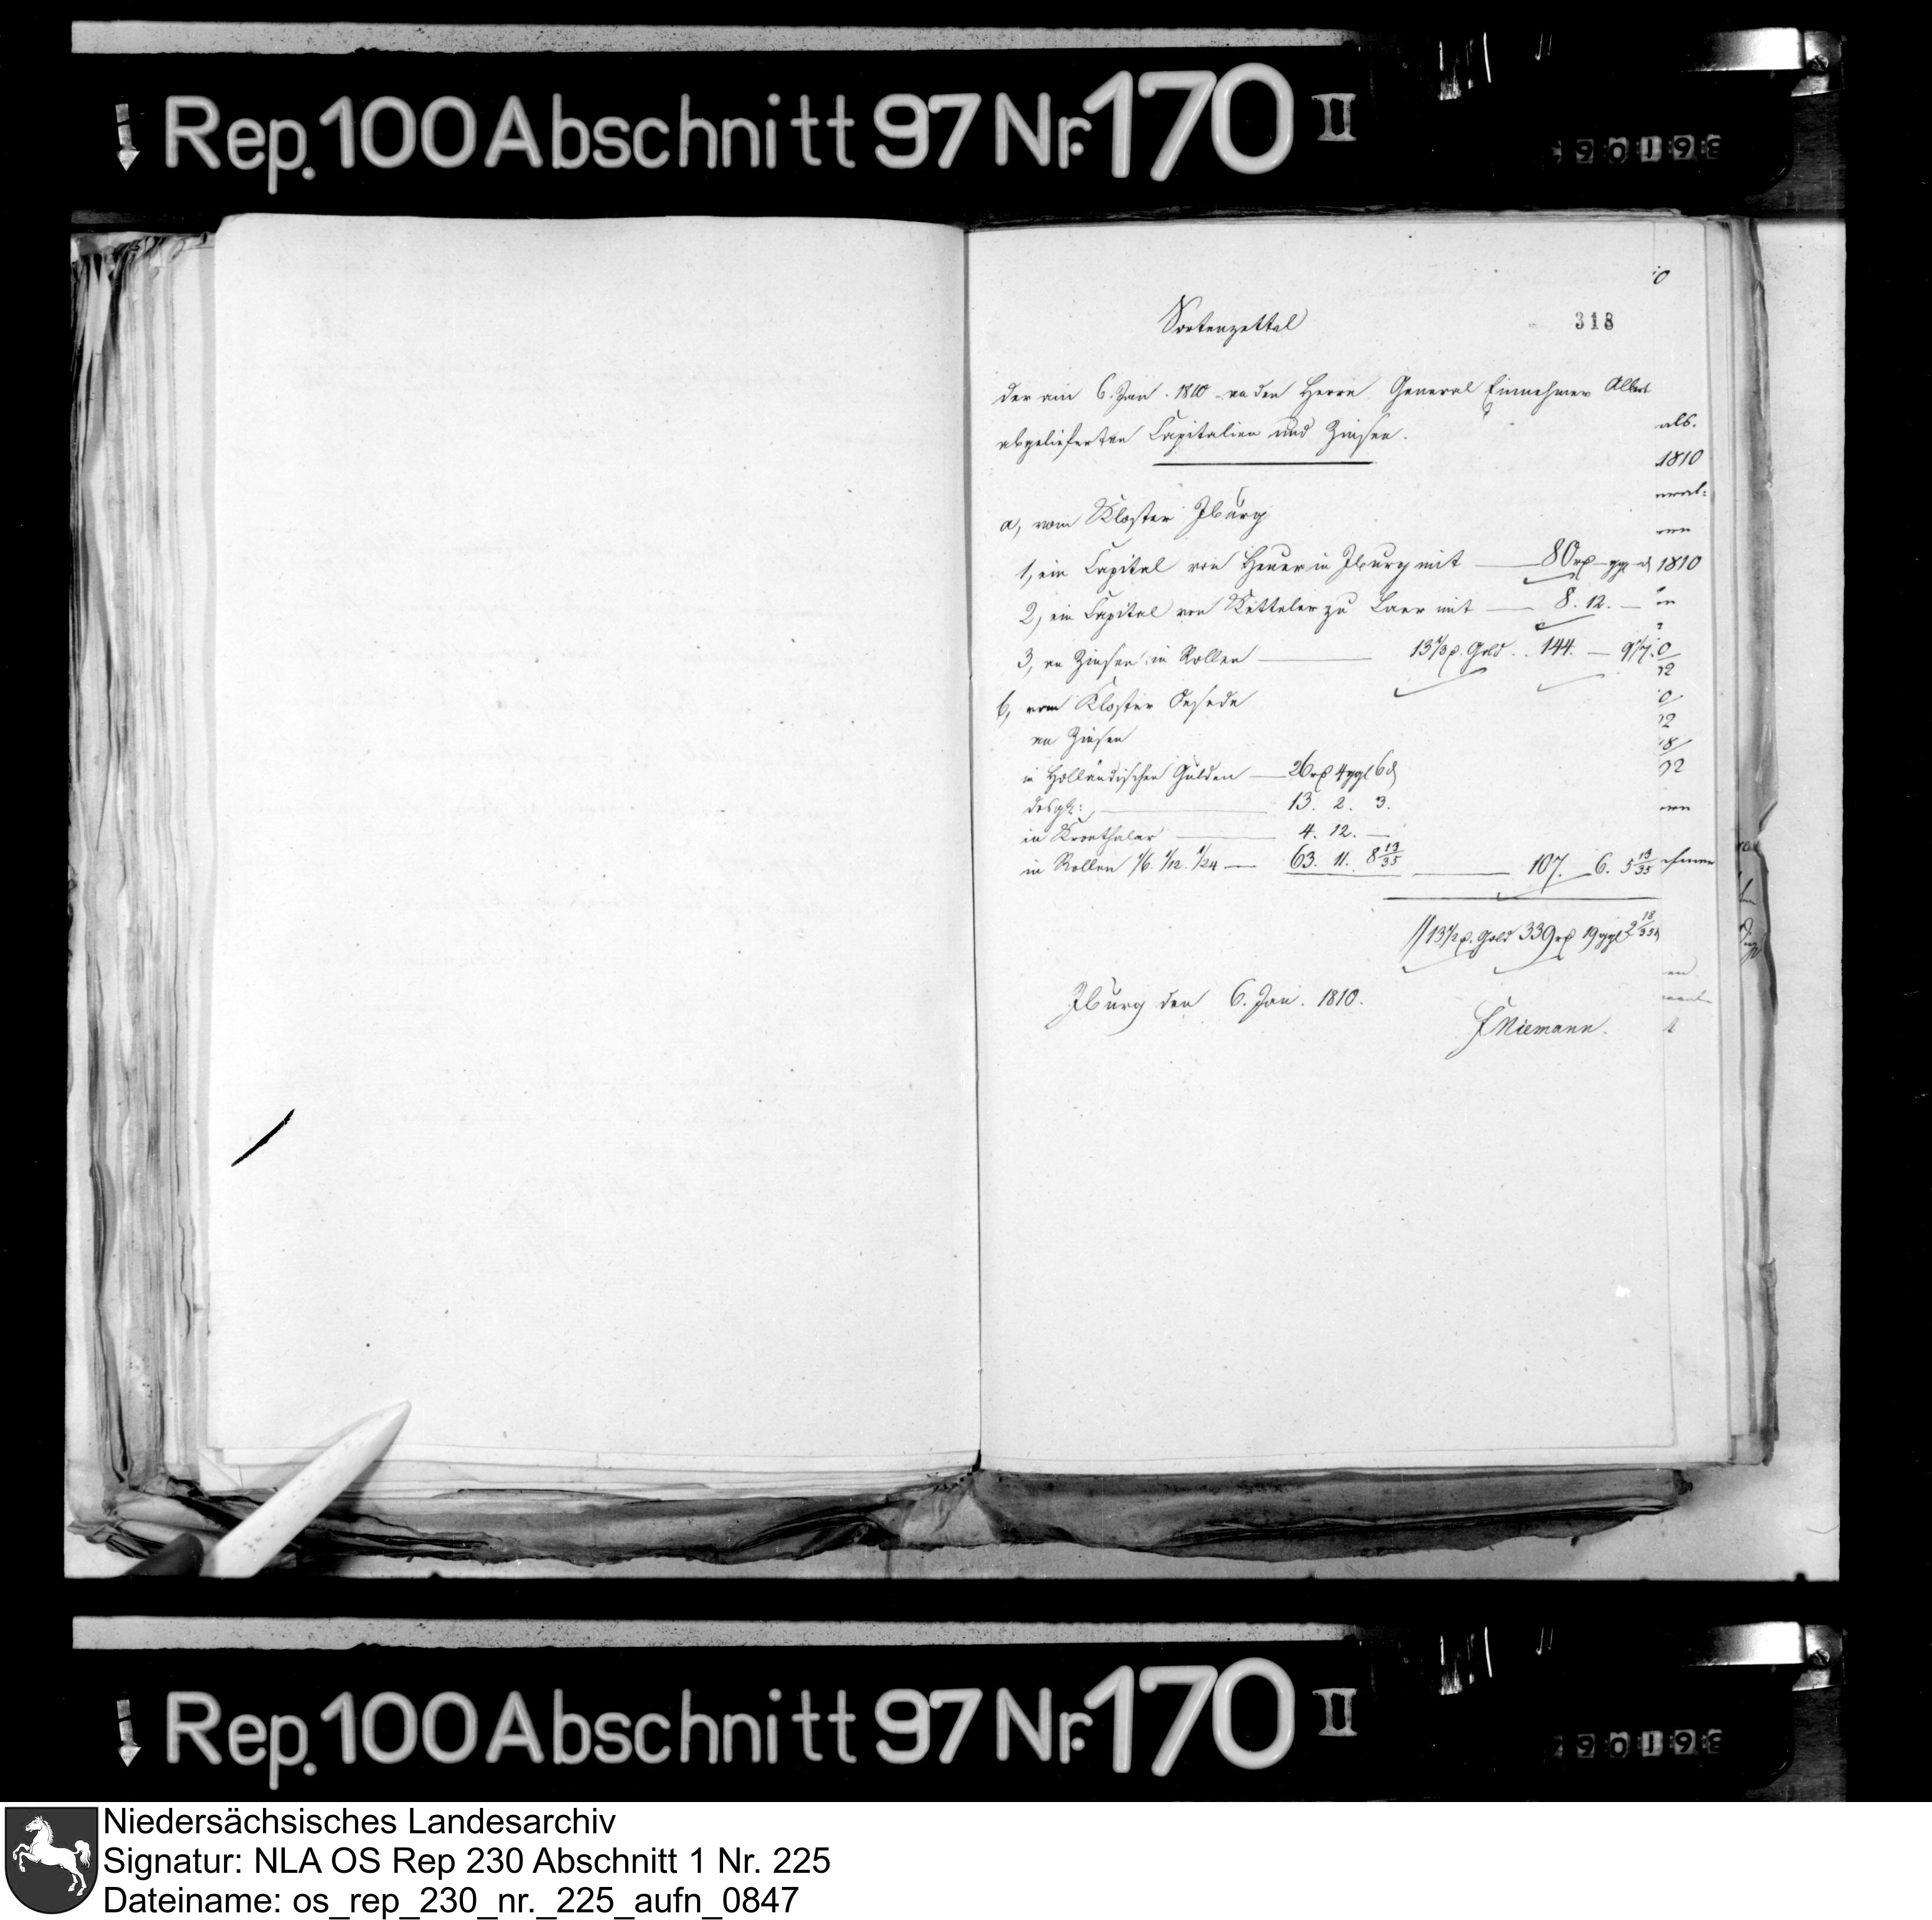 Rep. 100 Abschnitt 97 Nr. 170 II
Sortenzettel
318
der am 6. Jan. 1810 an den Herrn General Einnehmer Albert
abgelieferten Capitalien und Zinsen.
a, vom Kloster Iburg
1, ein Capital von Heuer in Iburg mit — 80 rp — ggl — d
2, ein Capital von Ketteler zu Laer mit — 8. 12. —
3, an Zinsen in Rollen — Gold. 144. —
b, vom Kloster Oesede
an Zinsen
in Holländischen Gulden — 26 rp 4 ggl 6 d
desgl: — 13. 2. 3.
in Kronthaler — 4. 12. —
in Rollen 1/6. 1/12. 1/24 — 63. 11. 8 19/35 — 107. 6. 5 19/35
Gold 339 rp 19 ggl 2 18/35 d
Iburg den 6. Jan. 1810.
FNiemann.
als.
1810
1810
Rep. 100 Abschnitt 97 Nr. 170 II
Niedersächsisches Landesarchiv
Signatur: NLA OS Rep 230 Abschnitt 1 Nr. 225
Dateiname: os_rep_230_nr._225_aufn_0847